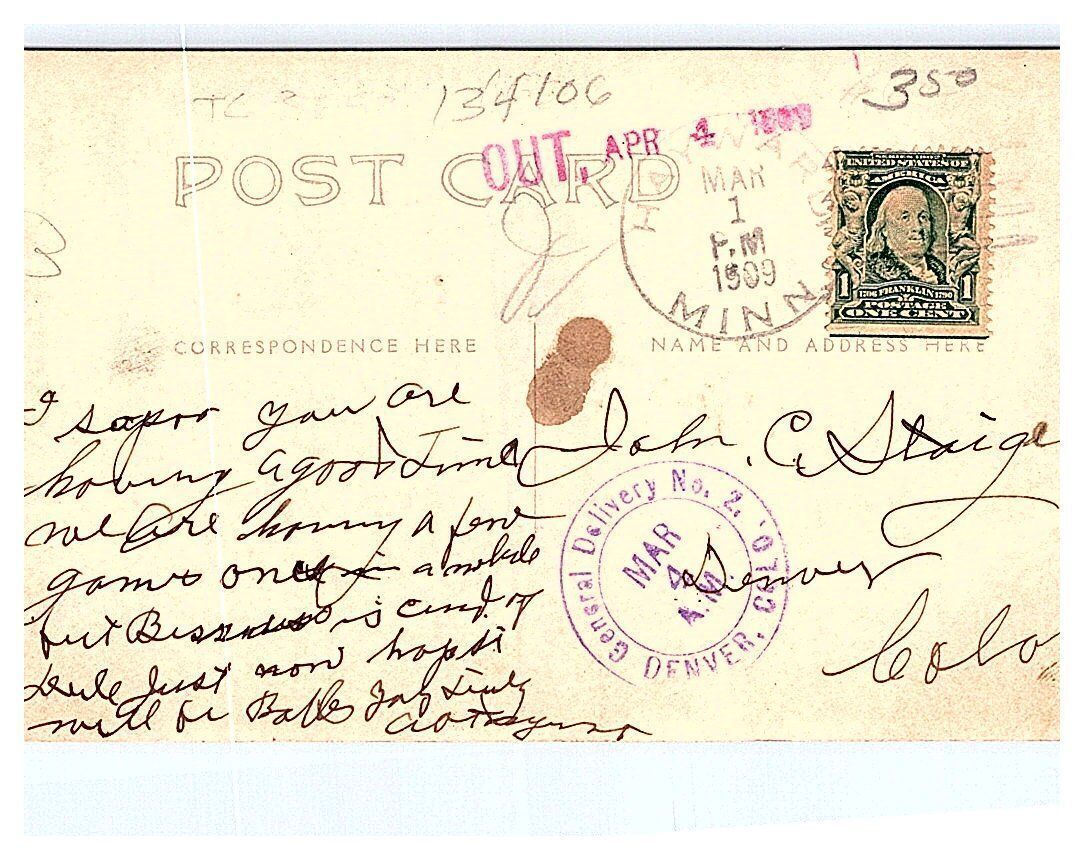 134106
350
POST CARD
OUT, APR 4 1909
HAYWARD
MAR
1
P.M
1909
MINN
SERIES 1902
UNITED STATES OF
AMERICA
1 1
1706 FRANKLIN 1790
POSTAGE
ONE CENT
CORRESPONDENCE HERE
NAME AND ADDRESS HERE
I you are
having a good time
we are having a few
games once in a while
but is of
just now
will be
John. C. Staige
Denver
Colo
General Delivery No. 2.
MAR
4
A.M.
DENVER, COLO.